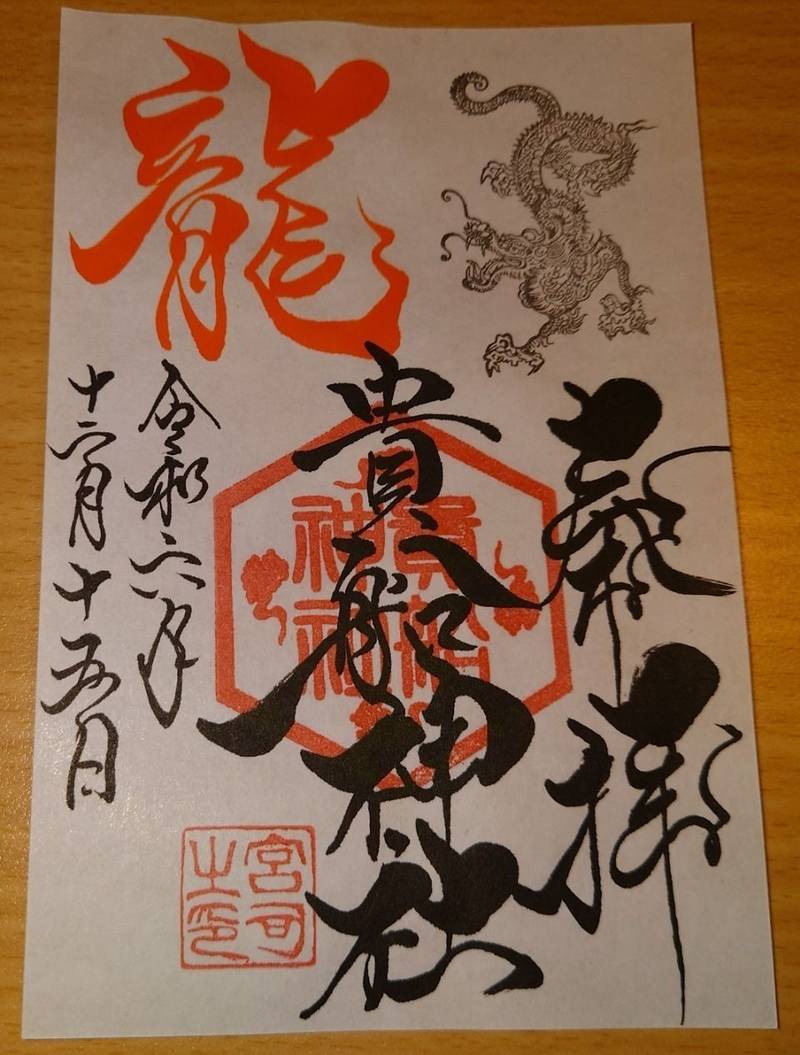 龍
奉拝
貴船神社
貴船
神社
令和六年
十二月十五日
宮司
之印